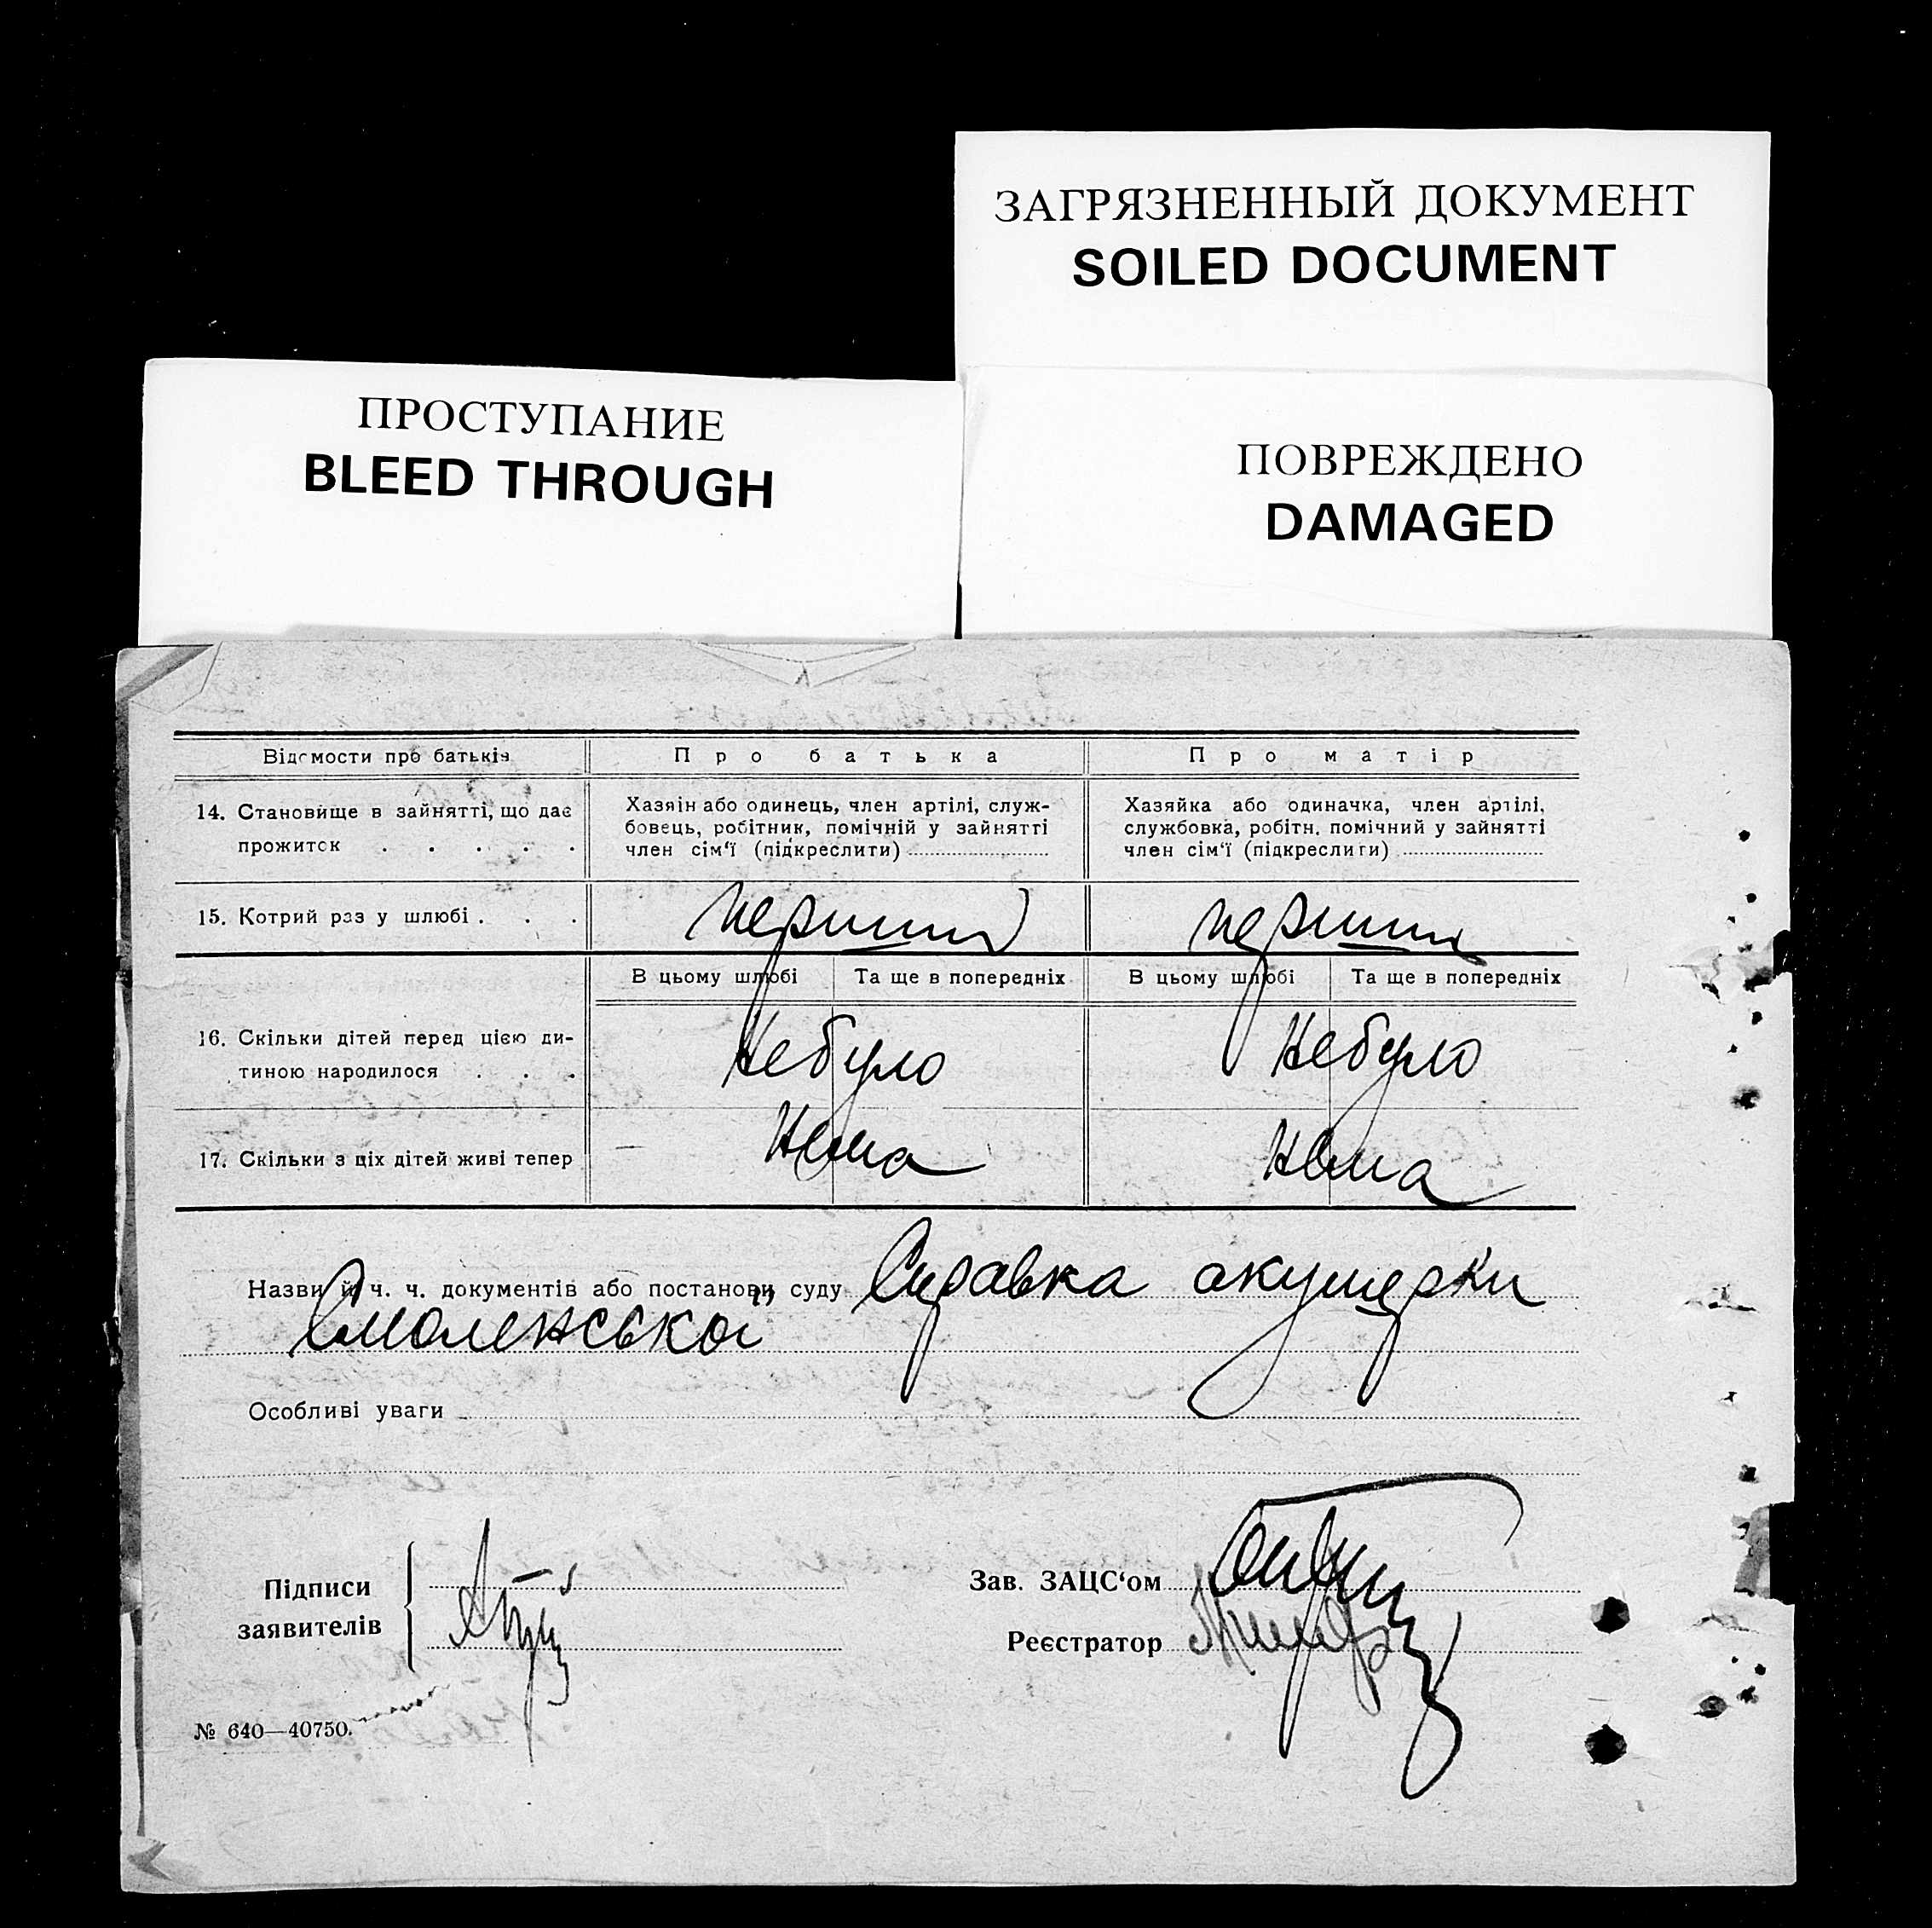 ЗАГРЯЗНЕННЫЙ ДОКУМЕНТ
SOILED DOCUMENT
ПРОСТУПАНИЕ
BLEED THROUGH
ПОВРЕЖДЕНО
DAMAGED
Відомости про батьків
Про батька
Про матір
14. Становище в зайнятті, що дає
прожиток . . . . .
Хазяїн або одинець, член артілі, служ-
бовець, робітник, помічній у зайнятті
член сім'ї (підкреслити)
Хазяйка або одиначка, член артілі,
службовка, робітн. помічний у зайнятті
член сім'ї (підкреслити)
15. Котрий раз у шлюбі . . .
перший
перший
В цьому шлюбі
Та ще в попередніх
В цьому шлюбі
Та ще в попередніх
16. Скільки дітей перед цією ди-
тиною народилося . . .
Небуло
Небуло
17. Скільки з ціх дітей живі тепер
—
Нема
Нема
Назви й ч. ч. документів або постанови суду Справка акушерки
Смоленської
Особливі уваги
Підписи
заявителів
Зав. ЗАЦС'ом
Реєстратор
№ 640—40750.